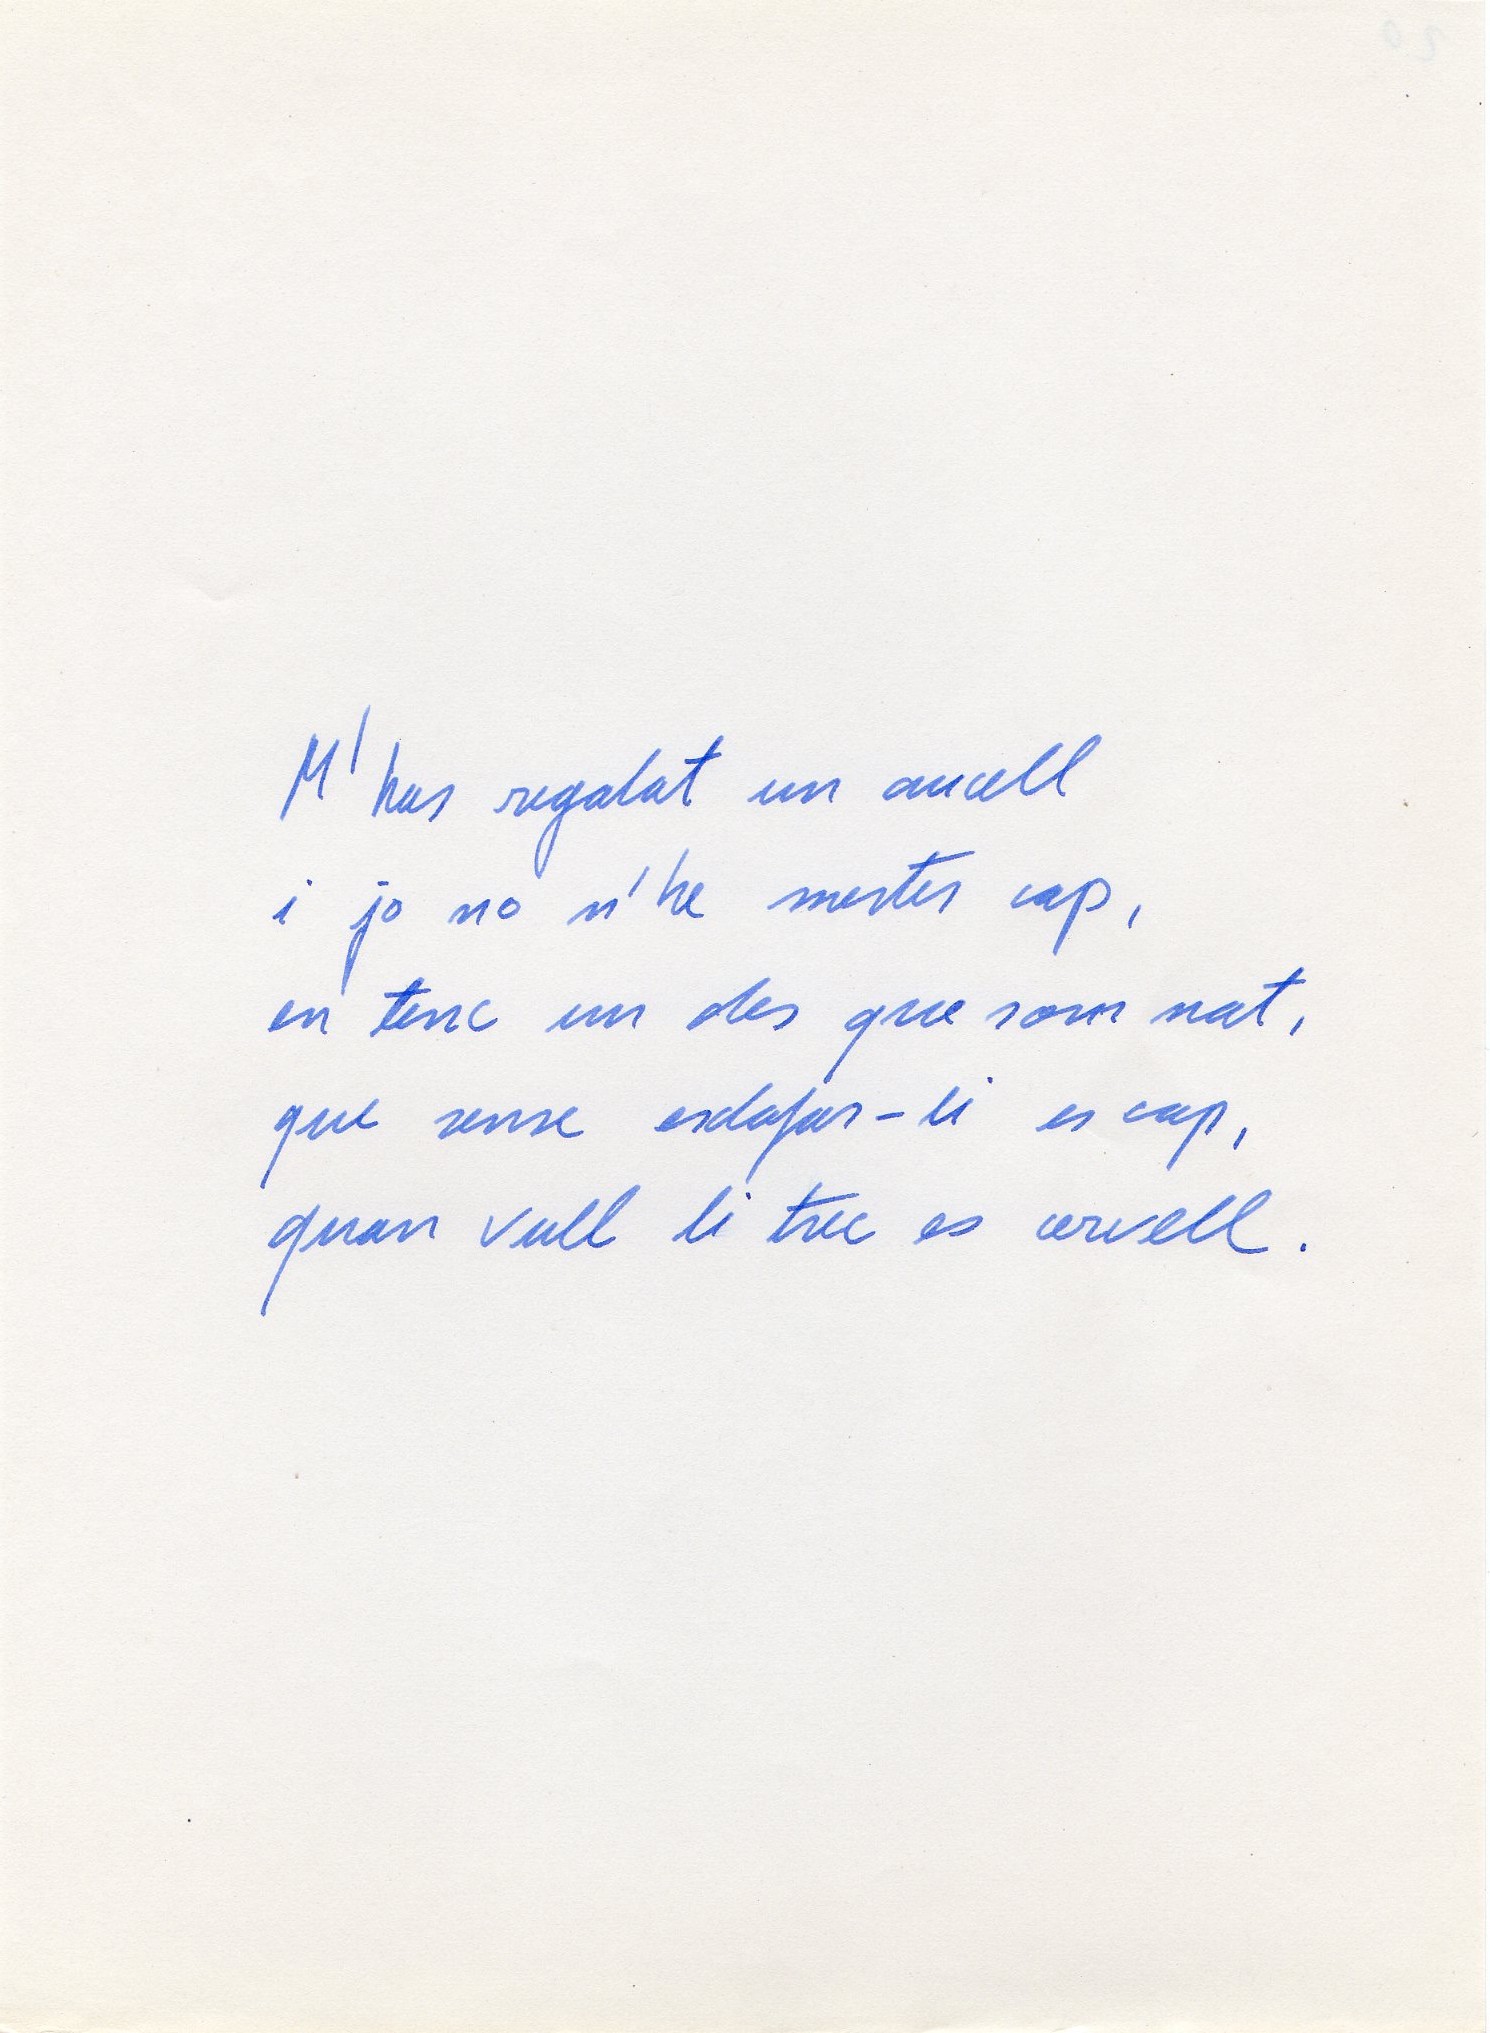 M'has regalat un aucell
i jo no n'he mester cap,
en tenc un des que som nat,
que sense esclafar-li es cap,
quan vull li trec es cervell.